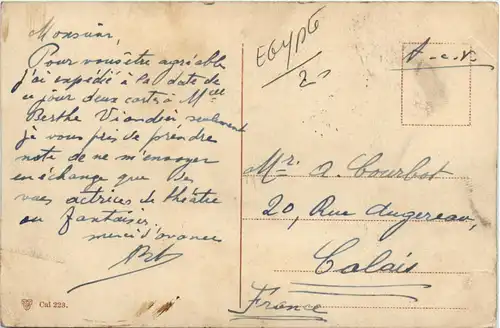 Monsieur,
Pour vous être agréable
j'ai expédié à la date de
ce jour deux cartes à Melle
Berthe Viandier, seulement
je vous pris de prendre
note de ne m'envoyer
en échange que des
vues actrices de théâtre
ou fantaisies.
merci d'avance
EGYPTE
2-
Mr. A. Courbot
20, Rue Augereau,
Calais
France
Cal 223.